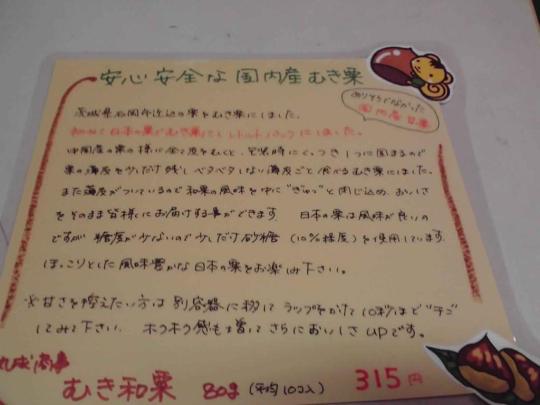 安心安全な国内産むき栗
ありそうでなかった
国内産甘栗
茨城県石岡市近辺の栗をむき栗にしました。
初めて日本の栗でむき栗にしレトルトパックにしました。
中国産の栗の様に全て皮をむくと、包装時にくっつき1つに固まるので
栗の薄皮を少しだけ残しベタベタしない薄皮ごと食べるむき栗にしました。
また薄皮がついているので和栗の風味を中に"ぎゅっ"と閉じ込め、おいしさ
をそのまま皆様にお届けする事ができます。 日本の栗は風味が良いの
ですが糖度が少ないので少しだけ砂糖(10%程度)を使用しています。
ほっこりとした風味豊かな日本の栗をお楽しみ下さい。
※甘さを控えたい方は別容器に移してラップをかけて10秒ほど"チン"
してみて下さい。ホクホク感も増してさらにおいしさUPです。
むき和栗 80g (平均10コ入) 315円